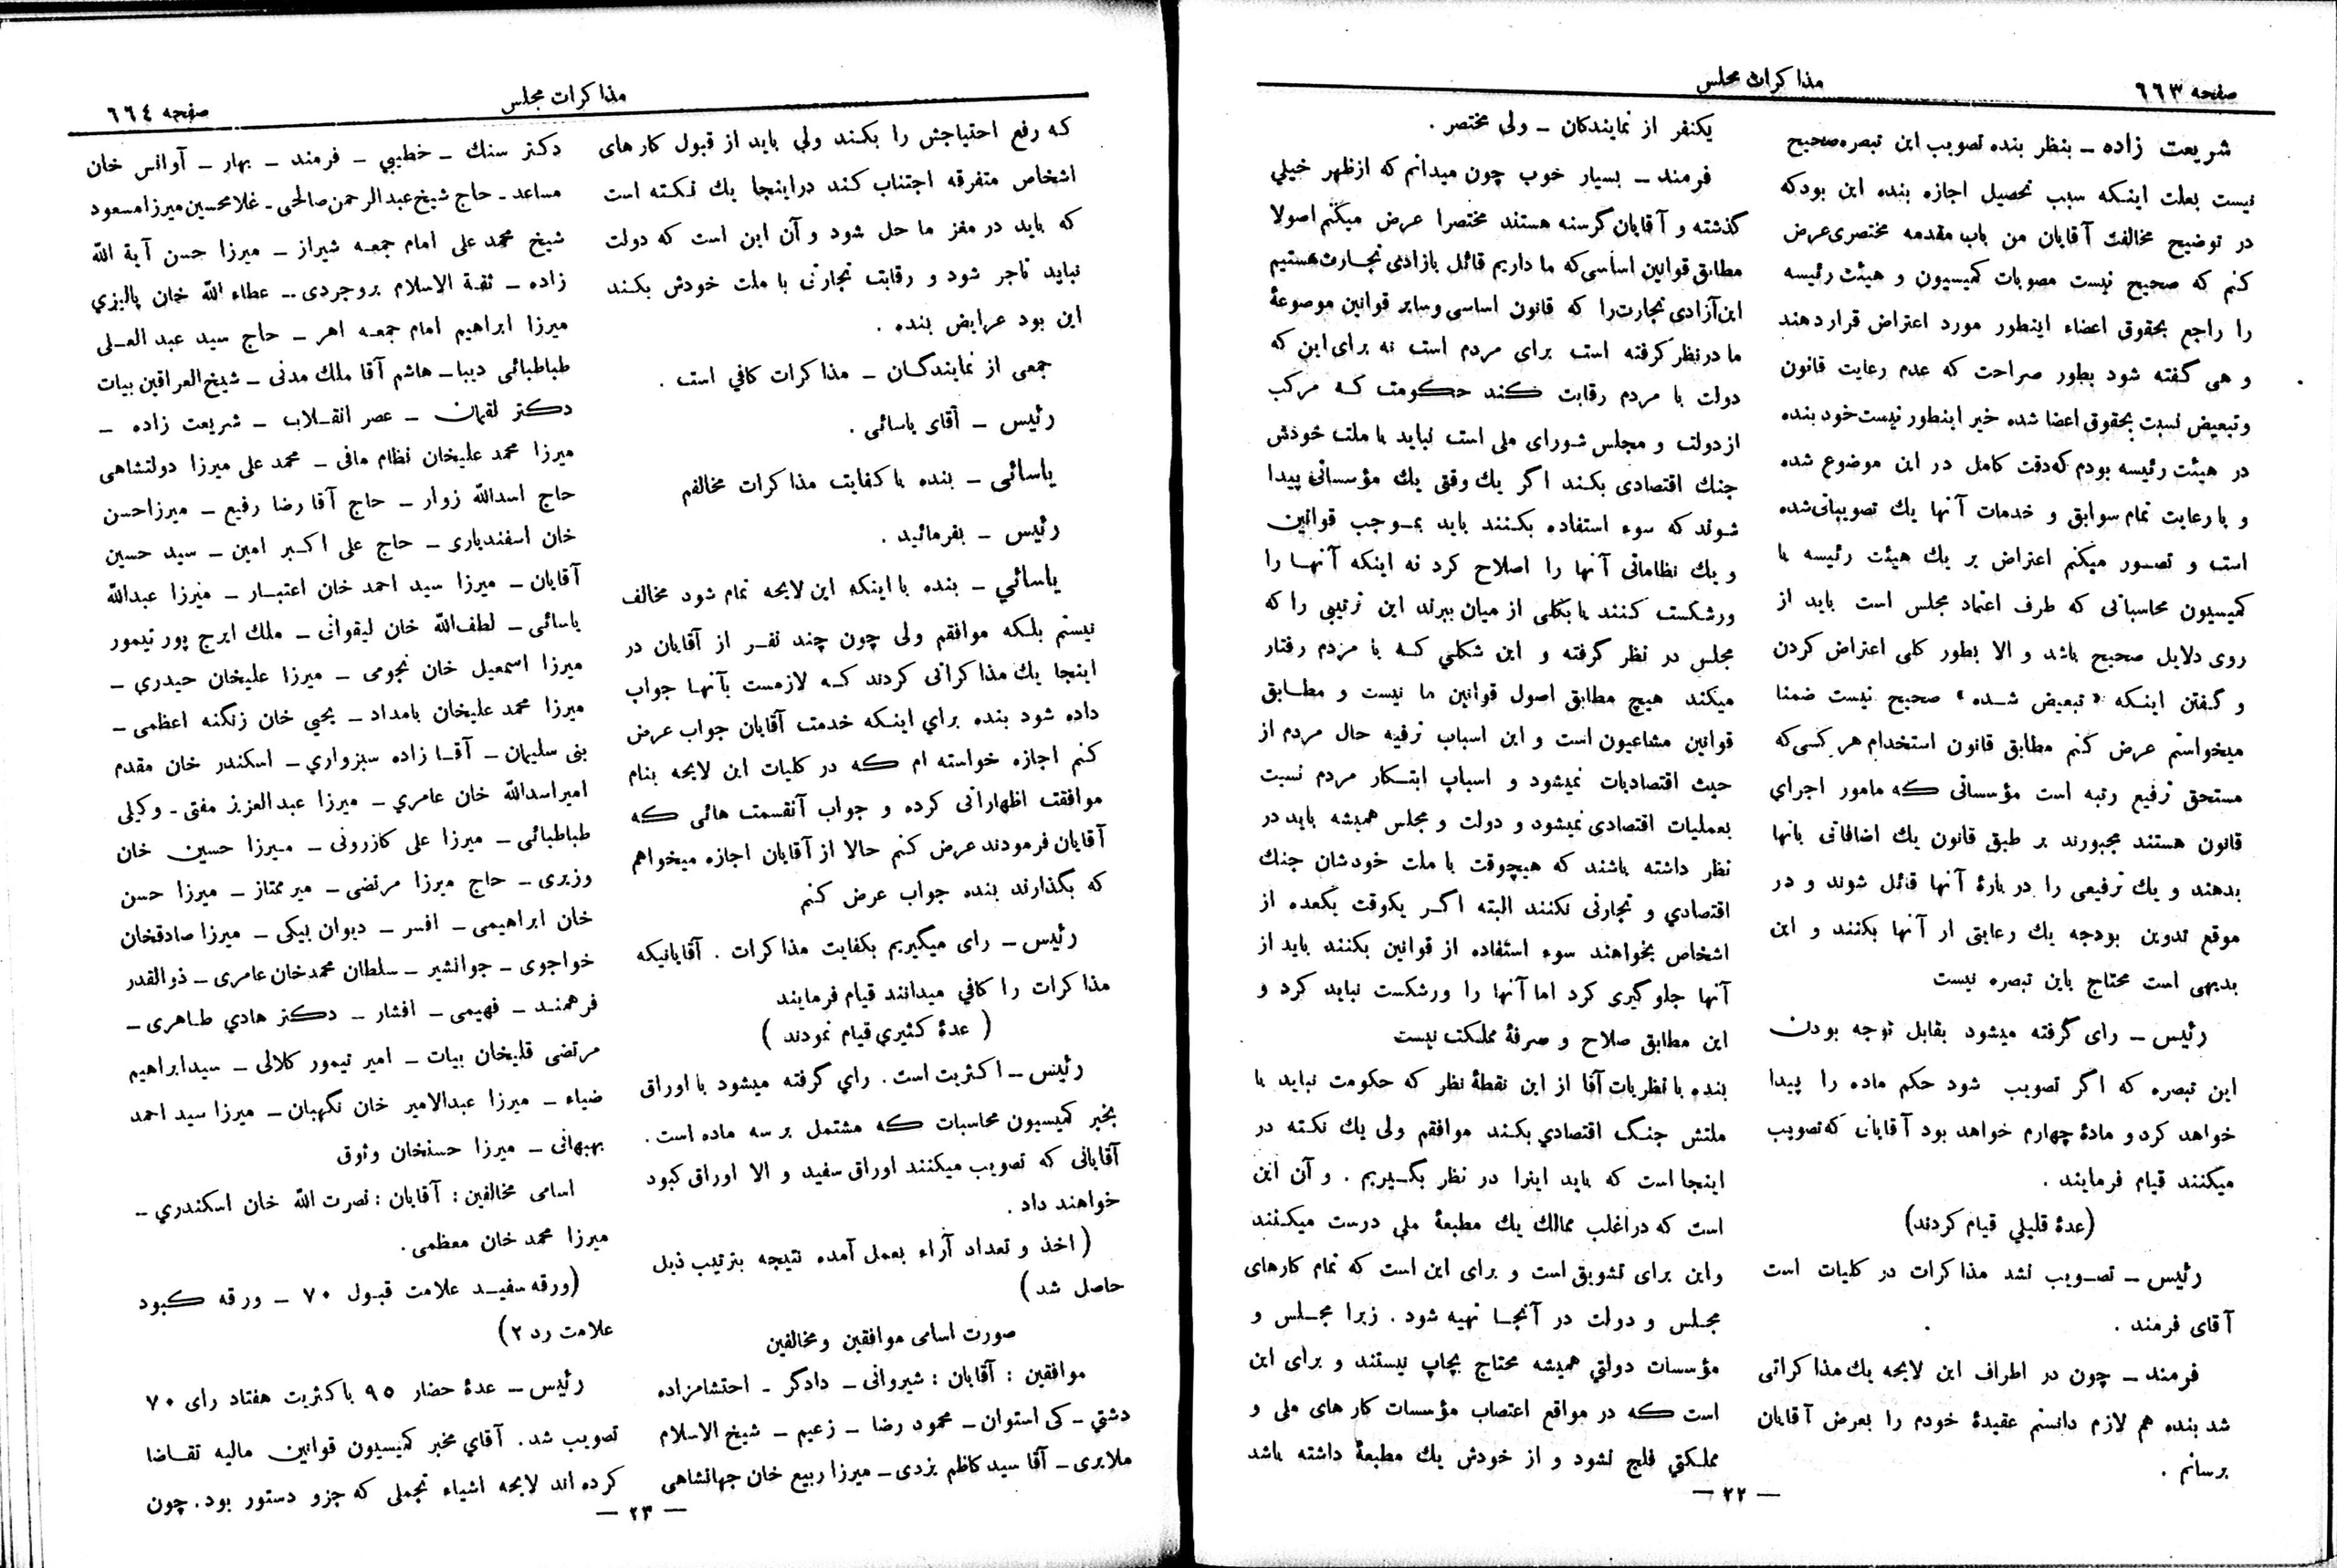 صفحه ٦٦٣
مذاکرات مجلس
شریعت زاده ــ بنظر بنده تصویب این تبصره صحیح
نیست بعلت اینکه سبب تحصیل اجازه بنده این بود که
در توضیح مخالفت آقایان من باب مقدمه مختصری عرض
کنم که صحیح نیست مصوبات کمیسیون و هیئت رئیسه
را راجع بحقوق اعضاء اینطور مورد اعتراض قرار دهند
و هی گفته شود بطور صراحت که عدم رعایت قانون
و تبعیض نسبت بحقوق اعضا شده خیر اینطور نیست خود بنده
در هیئت رئیسه بودم که دقت کامل در این موضوع شده
و با رعایت تمام سوابق و خدمات آنها یك تصویباتی شده
است و تصور میکنم اعتراض بر یك هیئت رئیسه یا
کمیسیون محاسباتی که طرف اعتماد مجلس است باید از
روی دلایل صحیح باشد و الا بطور کلی اعتراض کردن
و گفتن اینکه «تبعیض شده» صحیح نیست ضمنا
میخواستم عرض کنم مطابق قانون استخدام هر کسی که
مستحق ترفیع رتبه است مؤسساتی که مامور اجرای
قانون هستند مجبورند بر طبق قانون یك اضافاتی بانها
بدهند و یك ترفیعی را در بارهٔ آنها قائل شوند و در
موقع تدوین بودجه یك رعایتی از آنها بکنند و این
بدیهی است محتاج باین تبصره نیست
رئیس ــ رای گرفته میشود بقابل توجه بودن
این تبصره که اگر تصویب شود حکم ماده را پیدا
خواهد کرد و مادهٔ چهارم خواهد بود آقایان که تصویب
میکنند قیام فرمایند .
(عدهٔ قلیلي قیام کردند)
رئیس ــ تصویب نشد مذاکرات در کلیات است
آقای فرمند .
فرمند ــ چون در اطراف این لایحه یك مذاکراتی
شد بنده هم لازم دانستم عقیدهٔ خودم را بعرض آقایان
برسانم .
یکنفر از نمایندکان ــ ولی مختصر .
فرمند ــ بسیار خوب چون میدانم که از ظهر خیلي
گذشته و آقایان گرسنه هستند مختصرا عرض میکنم اصولا
مطابق قوانین اساسی که ما داریم قائل بازادی تجارت هستیم
این آزادی تجارت را که قانون اساسی و سایر قوانین موضوعهٔ
ما در نظر گرفته است برای مردم است نه برای این که
دولت با مردم رقابت کند حکومت که مرکب
از دولت و مجلس شورای ملی است نباید با ملت خودش
جنك اقتصادی بکند اگر یك وقتی یك مؤسساتی پیدا
شوند که سوء استفاده بکنند باید بموجب قوانین
و یك نظاماتی آنها را اصلاح کرد نه اینکه آنها را
ورشکست کنند یا بکلی از میان ببرند این ترتیبی را که
مجلس در نظر گرفته و این شکلي که با مردم رفتار
میکند هیچ مطابق اصول قوانین ما نیست و مطابق
قوانین مشاعیون است و این اسباب ترفیه حال مردم از
حیث اقتصادیات نمیشود و اسباب ابتکار مردم نسبت
بعملیات اقتصادی نمیشود و دولت و مجلس همیشه باید در
نظر داشته باشند که هیچوقت با ملت خودشان جنك
اقتصادي و تجارتی نکنند البته اگر یکوقت یکعده از
اشخاص بخواهند سوء استفاده از قوانین بکنند باید از
آنها جلوگیری کرد اما آنها را ورشکست نباید کرد و
این مطابق صلاح و صرفهٔ مملکت نیست
بنده با نظریات آقا از این نقطهٔ نظر که حکومت نباید با
ملتش جنگ اقتصادي بکند موافقم ولی یك نکته در
اینجا است که باید اینرا در نظر بگیریم . و آن این
است که در اغلب ممالك یك مطبعهٔ ملي درست میکنند
و این برای تشویق است و برای این است که تمام کارهای
مجلس و دولت در آنجا تهیه شود . زیرا مجلس و
مؤسسات دولتي همیشه محتاج بچاپ نیستند و برای این
است که در مواقع اعتصاب مؤسسات کار های ملی و
مملکتي فلج نشود و از خودش یك مطبعهٔ داشته باشد
— ٢٢ —
مذاکرات مجلس
صفحه ٦٦٤
که رفع احتیاجش را بکند ولي باید از قبول کار های
اشخاص متفرقه اجتناب کند در اینجا یك نکته است
که باید در مغز ما حل شود و آن این است که دولت
نباید تاجر شود و رقابت تجارتی با ملت خودش بکند
این بود عرایض بنده .
جمعی از نمایندگان ــ مذاکرات کافي است .
رئیس ــ آقای یاسائی .
یاسائی ــ بنده با کفایت مذاکرات مخالفم
رئیس ــ بفرمائید .
یاسائي ــ بنده با اینکه این لایحه تمام شود مخالف
نیستم بلکه موافقم ولی چون چند نفر از آقایان در
اینجا یك مذاکراتی کردند که لازمست بآنها جواب
داده شود بنده براي اینکه خدمت آقایان جواب عرض
کنم اجازه خواسته ام که در کلیات این لایحه بنام
موافقت اظهاراتی کرده و جواب آنقسمت هائی که
آقایان فرمودند عرض کنم حالا از آقایان اجازه میخواهم
که بگذارند بنده جواب عرض کنم
رئیس ــ رای میگیریم بکفایت مذاکرات . آقایانیکه
مذاکرات را کافي میدانند قیام فرمایند
( عدهٔ کثیري قیام نمودند )
رئیس ــ اکثریت است . راي گرفته میشود با اوراق
بخبر کمیسیون محاسبات که مشتمل بر سه ماده است .
آقایانی که تصویب میکنند اوراق سفید و الا اوراق کبود
خواهند داد .
( اخذ و تعداد آراء بعمل آمده نتیجه بترتیب ذیل
حاصل شد )
صورت اسامی موافقین و مخالفین
موافقین : آقایان : شیروانی ــ دادگر ــ احتشامزاده
دشتي ــ کی استوان ــ محمود رضا ــ زعیم ــ شیخ الاسلام
ملایری ــ آقا سید کاظم یزدی ــ میرزا ربیع خان جهانشاهی
دکتر سنك ــ خطیبي ــ فرمند ــ بهار ــ آوانس خان
مساعد ــ حاج شیخ عبد الرحمن صالحی ــ غلامحسین میرزا مسعود
شیخ محمد علی امام جمعه شیراز ــ میرزا حسن آیة الله
زاده ــ ثقة الاسلام بروجردی ــ عطاء الله خان پالیزي
میرزا ابراهیم امام جمعه اهر ــ حاج سید عبد العلی
طباطبائی دیبا ــ هاشم آقا ملك مدنی ــ شیخ العراقین بیات
دکتر لقمان ــ عصر انقلاب ــ شریعت زاده ــ
میرزا محمد علیخان نظام مافی ــ محمد علی میرزا دولتشاهی
حاج اسدالله زوار ــ حاج آقا رضا رفیع ــ میرزا حسن
خان اسفندیاری ــ حاج علی اکبر امین ــ سید حسین
آقایان ــ میرزا سید احمد خان اعتبار ــ میرزا عبدالله
یاسائی ــ لطف‌الله خان لیقوانی ــ ملك ایرج پور تیمور
میرزا اسمعیل خان نجومی ــ میرزا علیخان حیدري ــ
میرزا محمد علیخان بامداد ــ یحیي خان زنگنه اعظمی ــ
بنی سلیمان ــ آقا زاده سبزواري ــ اسکندر خان مقدم
امیر اسدالله خان عامري ــ میرزا عبد العزیز مفتی ــ وکیلی
طباطبائی ــ میرزا علی کازرونی ــ میرزا حسین خان
وزیری ــ حاج میرزا مرتضی ــ میر ممتاز ــ میرزا حسن
خان ابراهیمی ــ افسر ــ دیوان بیکی ــ میرزا صادقخان
خواجوی ــ جوانشیر ــ سلطان محمد خان عامری ــ ذوالقدر
فرهمند ــ فهیمی ــ افشار ــ دکتر هادي طاهری ــ
مرتضی قلیخان بیات ــ امیر تیمور کلالی ــ سید ابراهیم
ضیاء ــ میرزا عبدالامیر خان نگهبان ــ میرزا سید احمد
بهبهانی ــ میرزا حسنخان وثوق
اسامی مخالفین : آقایان : نصرت الله خان اسکندري ــ
میرزا محمد خان معظمی .
(ورقه سفید علامت قبول ٧٠ ــ ورقه کبود
علامت رد ٢)
رئیس ــ عدهٔ حضار ٩٥ باکثریت هفتاد رای ٧٠
تصویب شد . آقاي مخبر کمیسیون قوانین مالیه تقاضا
کرده اند لایحه اشیاء تجملی که جزو دستور بود . چون
— ٢٣ —